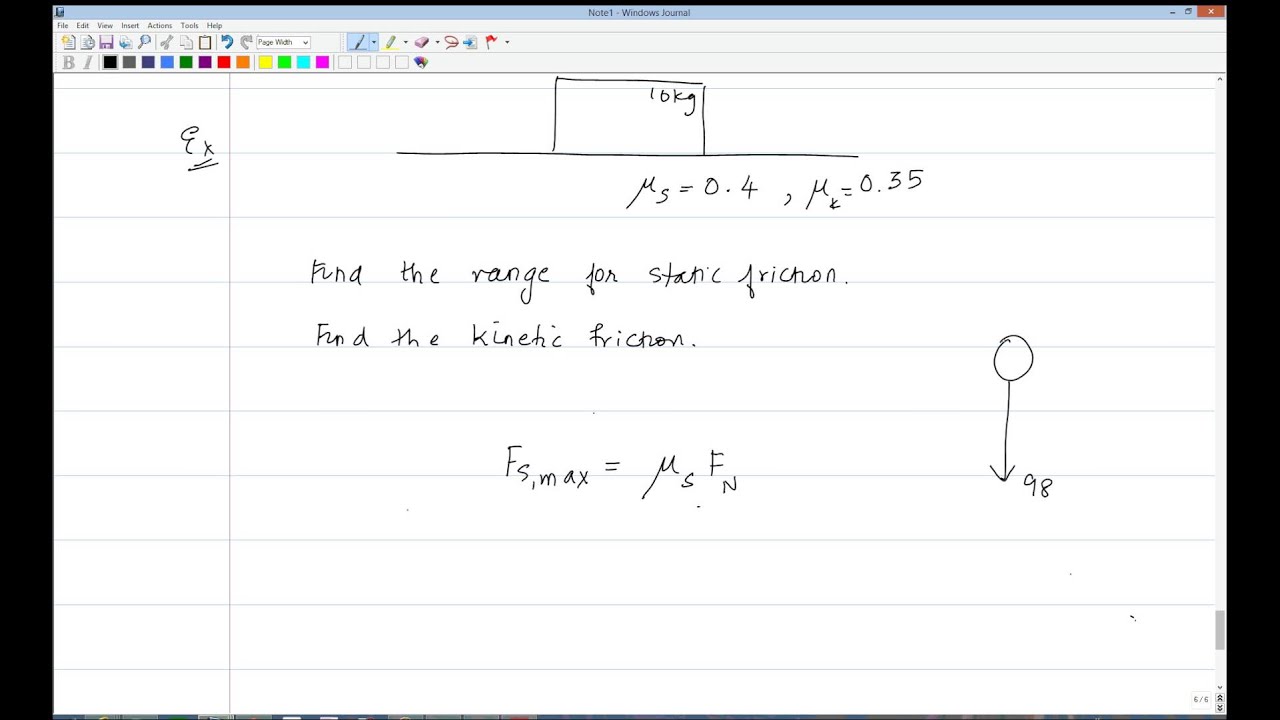 Note1 - Windows Journal
File Edit View Insert Actions Tools Help
Page Width
B I
10kg
Ex
μs = 0.4 , μk = 0.35
Find the range for static friction.
Find the kinetic friction.
Fs,max = μs FN
98
6 / 6